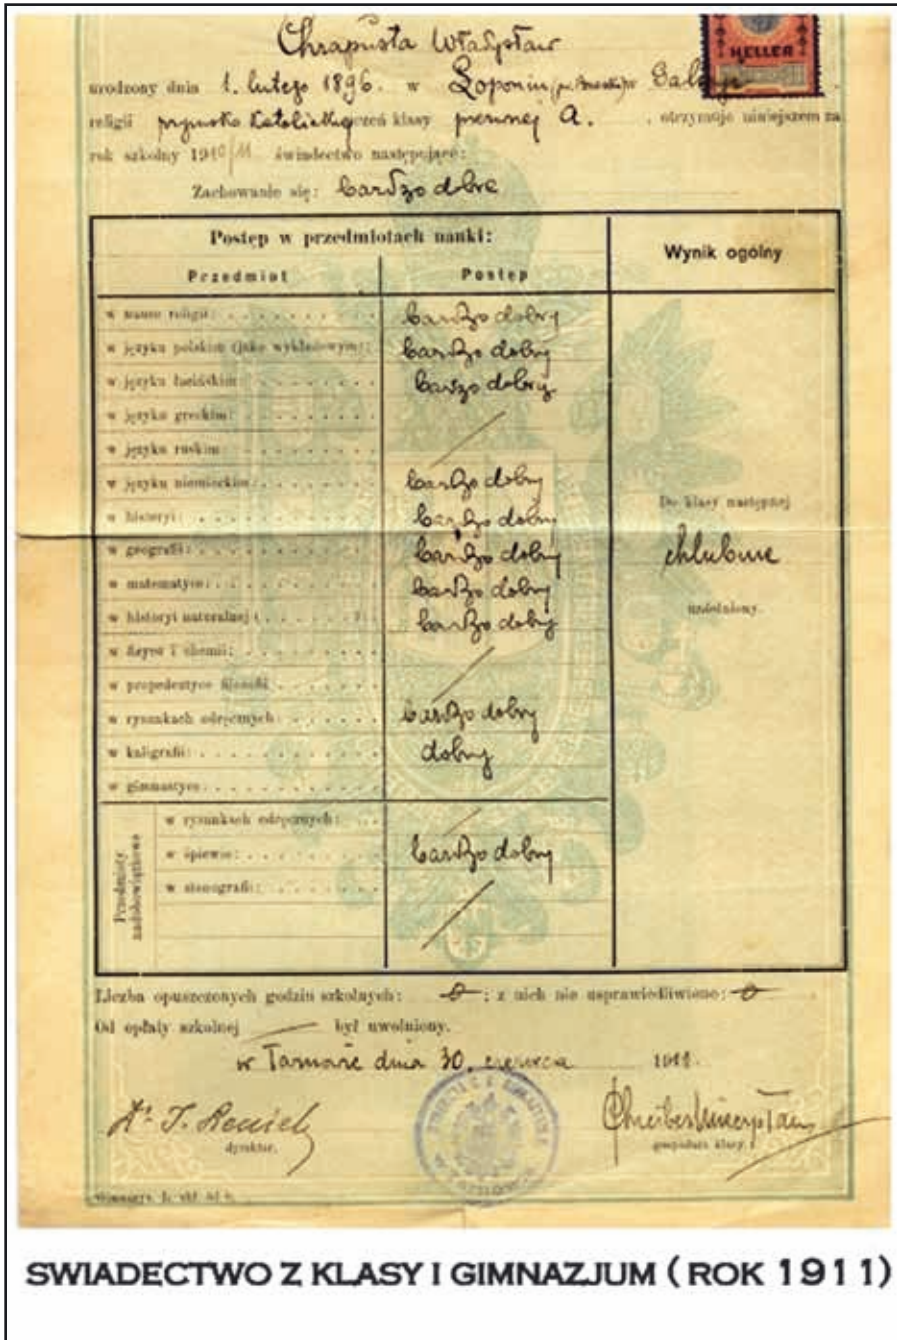 Chrapusta Władysław
HELLER
urodzony dnia 1. lutego 1896. w Łoponiu (pw. Brzesko) w Galicyi
religii rzymsko katolickiej uczeń klasy pierwszej A. , otrzymuje niniejszem za
rok szkolny 1910/11 świadectwo następujące:
Zachowanie się: bardzo dobre
Postęp w przedmiotach nauki:
Wynik ogólny
Przedmiot Postęp
w nauce religii: bardzo dobry
w języku polskim (jako wykładowym): bardzo dobry
w języku łacińskim: bardzo dobry
w języku greckim:
w języku ruskim:
w języku niemieckim: bardzo dobry
w historyi: bardzo dobry
w geografii: bardzo dobry
w matematyce: bardzo dobry
w historyi naturalnej ( ): bardzo dobry
w fizyce i chemii:
w propedeutyce filozofii
w rysunkach odręcznych: bardzo dobry
w kaligrafii: dobry
w gimnastyce
Do klasy następnej
chlubnie
uzdolniony.
Przedmioty nadobowiązkowe
w rysunkach odręcznych:
w śpiewie: bardzo dobry
w stenografii:
Liczba opuszczonych godzin szkolnych: 0 ; z nich nie usprawiedliwiono: 0
Od opłaty szkolnej — był uwolniony.
w Tarnowie dnia 30. czerwca 1911.
Dr. J.
dyrektor. gospodarz klasy.
SWIADECTWO Z KLASY I GIMNAZJUM ( ROK 1911)